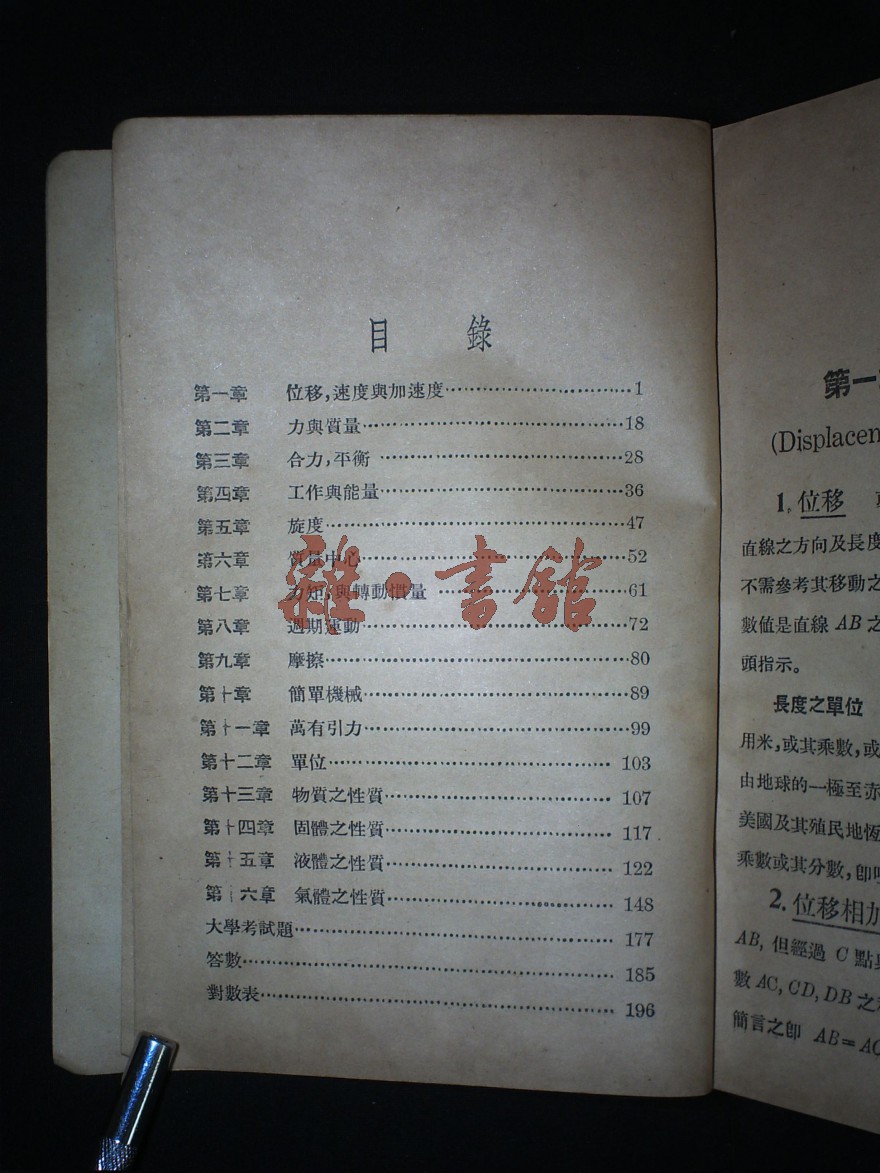 目錄
第一章 位移,速度與加速度 1
第二章 力與質量 18
第三章 合力,平衡 28
第四章 工作與能量 36
第五章 旋度 47
第六章 質量中心 52
第七章 力矩,與轉動慣量 61
第八章 週期運動 72
第九章 摩擦 80
第十章 簡單機械 89
第十一章 萬有引力 99
第十二章 單位 103
第十三章 物質之性質 107
第十四章 固體之性質 117
第十五章 液體之性質 122
第十六章 氣體之性質 148
大學考試題 177
答數 185
對數表 196
雜·書館
第一
(Displacem
1. 位移
直線之方向及長度
不需參考其移動之
數值是直線 AB 之
頭指示。
長度之單位
用米,或其乘數,或
由地球的一極至赤
美國及其殖民地恆
乘數或其分數,卽
2. 位移相加
AB, 但經過 C 點
數 AC, CD, DB 之
簡言之卽 AB=AC